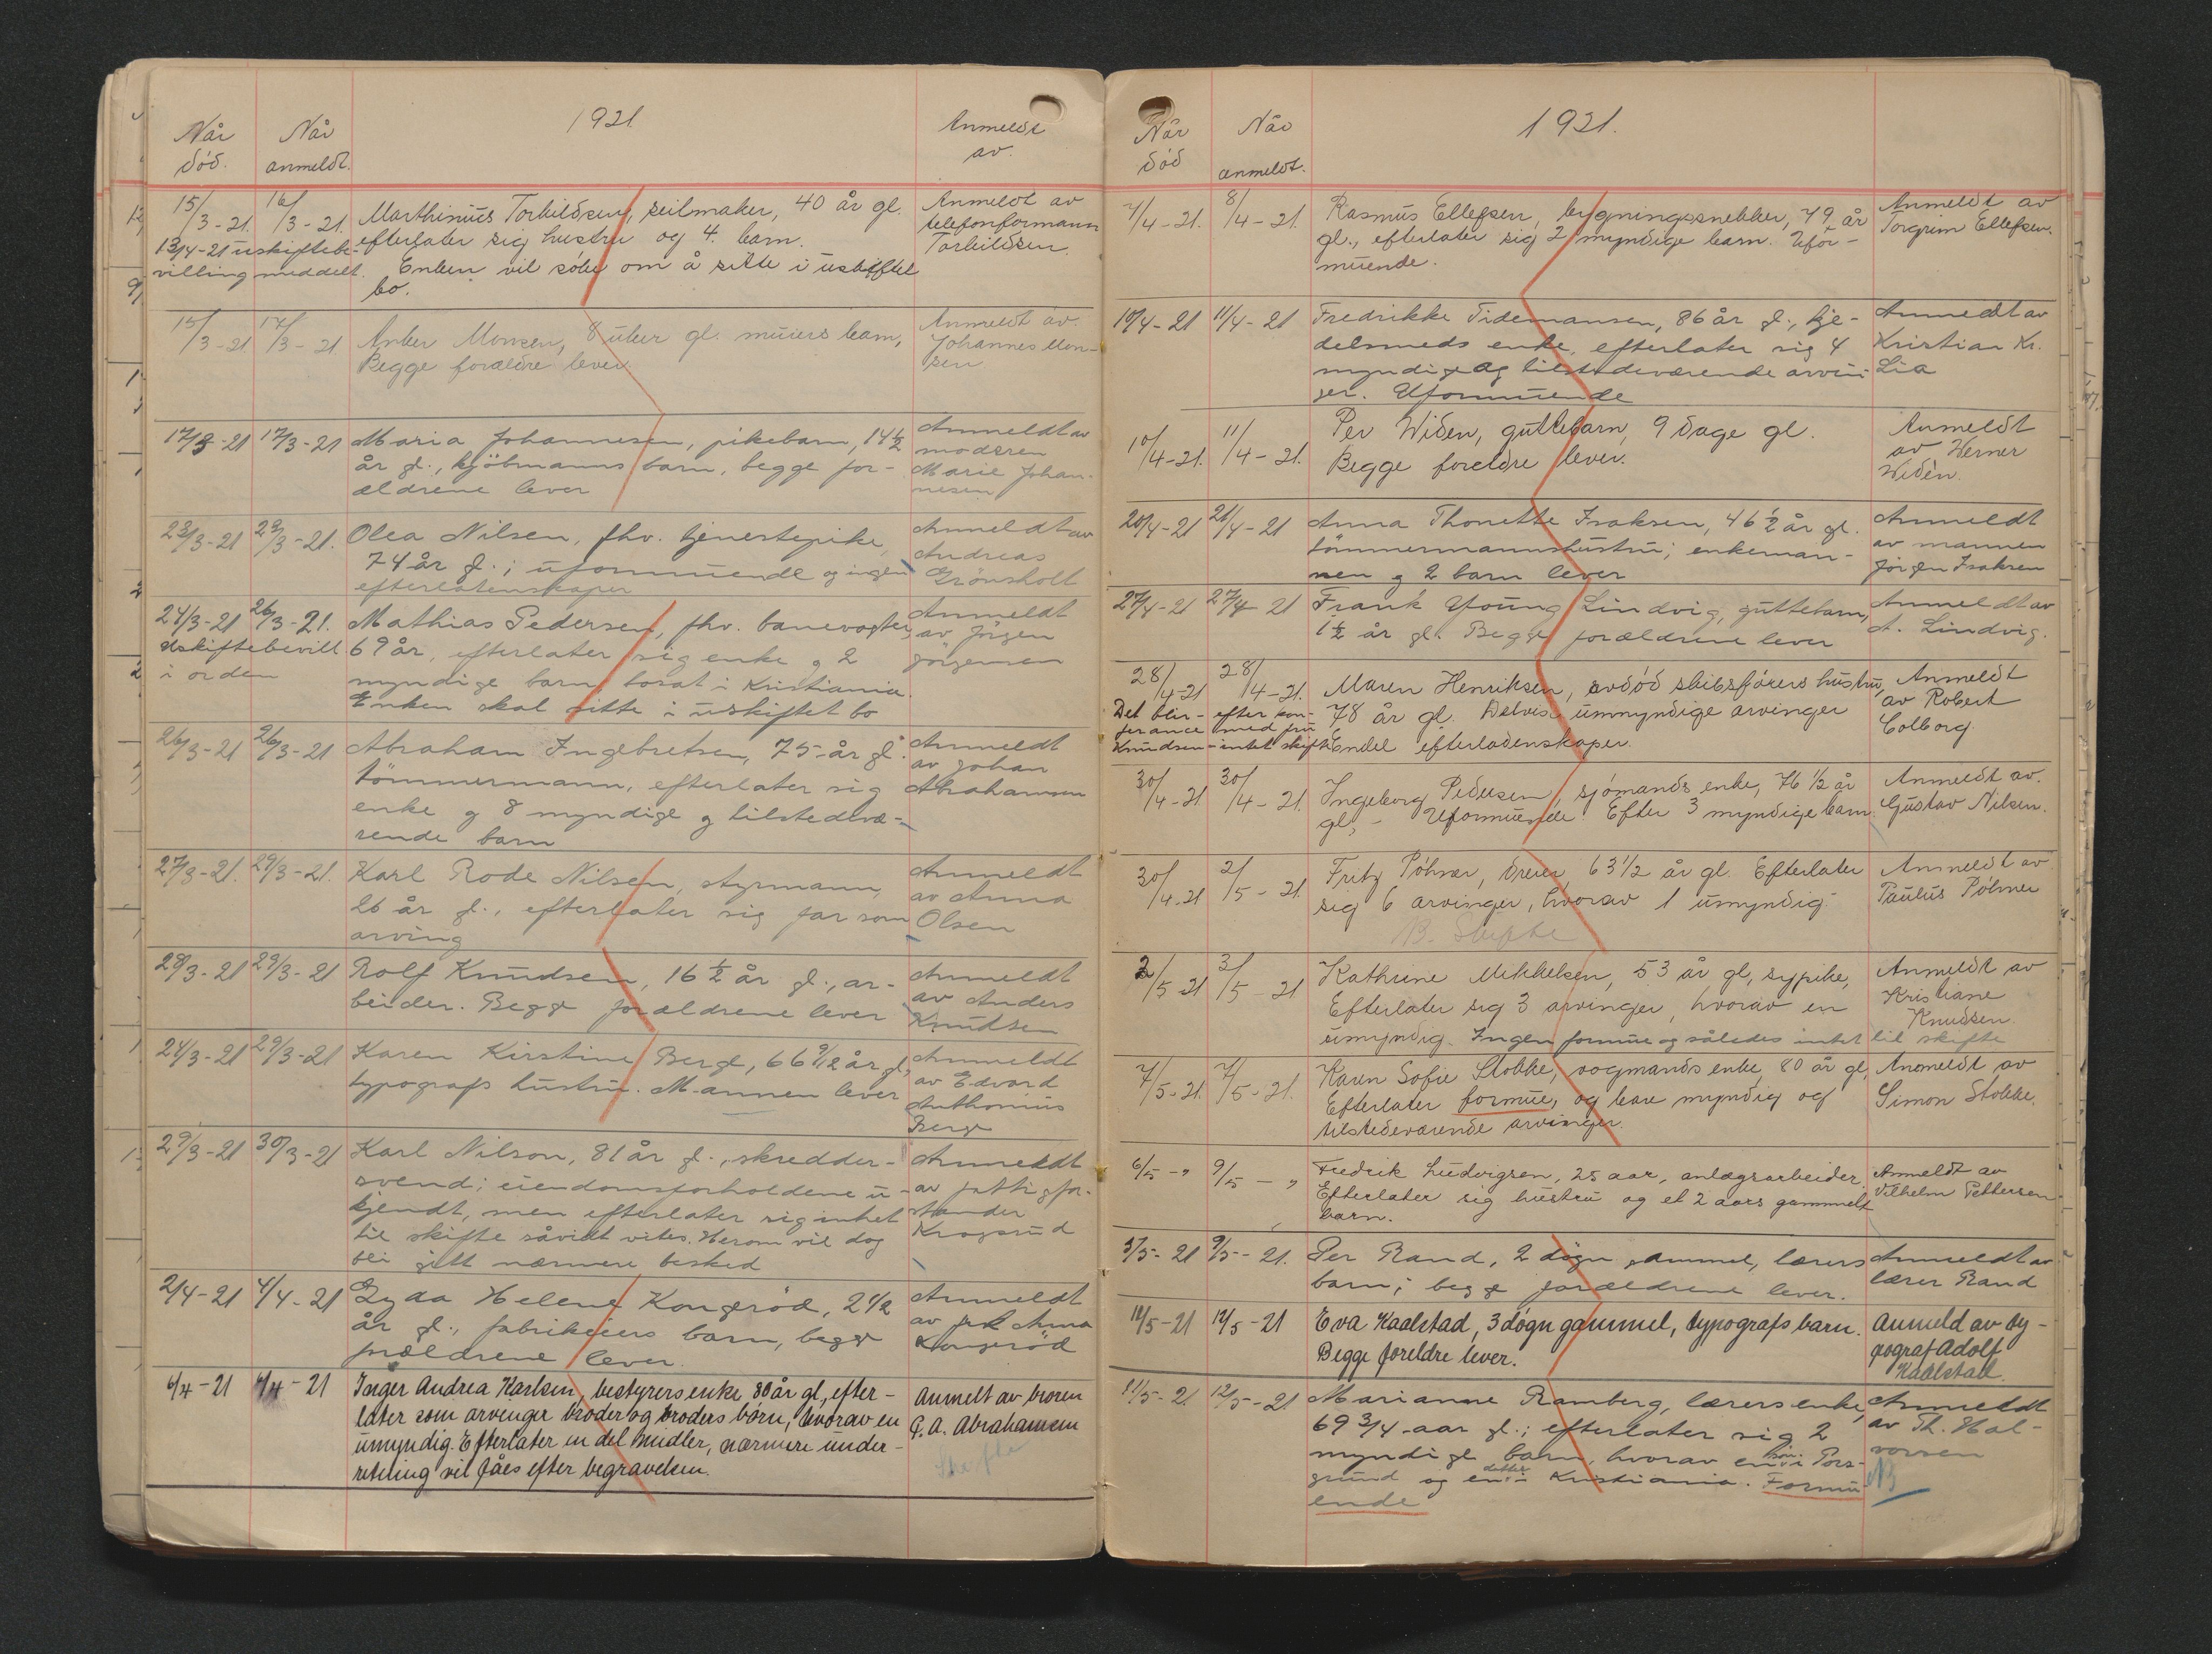 1921.
Når død. Når anmeldt. Anmeldt av.
15/3-21. 16/3-21. Marthinius Torkildsen, seilmaker, 40 år gl. Anmeldt av
efterlater sig hustru og 4. barn. telefonformann
13/4-21 uskiftebe- Enken vil søke om å sitte i uskiftet Torkildsen.
villing meddelt. bo.
15/3-21 17/3-21 Anker Monsen, 8 uker gl. murers barn, Anmeldt av
Begge forældre lever. Johannes Mon-
sen
17/3-21 17/3-21 Maria Johannesen, pikebarn, 14½ Anmeldt av
år gl., kjöbmanns barn, begge for- moderen
ældrene lever Marie Johan-
nesen
23/3-21 29/3-21. Olea Nilsen, fhv. tjenestepike, Anmeldt av
74 år gl.; uformuende og ingen Andreas
efterlatenskaper Grönsholt
24/3-21 26/3-21. Mathias Pedersen, fhv. banevogter, Anmeldt
uskiftebevill 69 år, efterlater sig enke og 2 av Jörgen
i orden myndige barn, bosat i Kristiania. Jörgensen
Enken skal sitte i uskiftet bo
26/3-21 26/3-21 Abraham Ingebretsen, 75 år gl. Anmeldt
tömmermann, efterlater sig av Johan
enke og 8 myndige og tilstedevæ- Abrahamsen
rende barn
27/3-21. 29/3-21. Karl Rode Nilsen, styrmann, Anmeldt
26 år gl., efterlater sig far som av Anna
arving Olsen
28/3-21 29/3-21 Rolf Knudsen, 16½ år gl., ar- Anmeldt
beider. Begge forældrene lever av Anders
Knudsen
24/3-21 29/3-21 Karen Kirstine Berg, 66 9/12 år gl, Anmeldt
typografs hustru. Mannen lever av Edvard
Anthonius
Berg
29/3-21 30/3-21 Karl Nilson, 81 år gl., skredder- Anmeldt
svend; eiendomsforholdene u- av fattigfor-
kjendt, men efterlater sig intet stander
til skifte såvidt vites. Herom vil dog Krogsrud
bli gitt nærmere besked
2/4-21 4/4-21 Gyda Helene Kongeröd, 2½ Anmeldt
år gl., fabrikeiers barn, begge av frk Anna
forældrene lever. Kongeröd
6/4-21 6/4-21 Inger Andrea Karlsen, bestyrers enke 88 år gl, efter- Anmelt av broren
later som arvinger broder og broders børn, hvorav en G. A. Abrahamsen
umyndig. Efterlater en del midler, nærmere under-
retning vil fåes efter begravelsen. Skifte

1921.
Når død Når anmeldt.
7/4-21. 8/4-21. Rasmus Ellefsen, bygningssnekker, 79 år Anmeldt av
gl., efterlater sig 2 myndige barn. Ufor- Torgrim Ellefsen.
muende.
10/4-21 11/4-21 Fredrikke Tidemansen, 86 år gl., kje- Anmeldt av
delsmeds enke, efterlater sig 4 Kristian Kr.
myndige og tilstedeværende arvin- Lia
ger. Uformuende
10/4-21. 11/4-21. Per Widen, guttebarn, 9 dage gl. Anmeldt
Begge foreldre lever. av Werner
Widèn.
20/4-21 21/4-21 Anna Thonette Isaksen, 46½ år gl. Anmeldt
tömmermannshustru; enkeman- av mannen
nen og 2 barn lever Jörgen Isaksen
27/4-21 27/4-21 Frank Young Lindvig, guttebarn, Anmeldt av
1½ år gl. Begge forældrene lever A. Lindvig.
28/4-21 28/4-21. Maren Henriksen, avdöd skibsförers hustru, Anmeldt
Det blir - efter kon- 78 år gl. Delvis umyndige arvinger av Robert
ferance med fru Endel efterladenskaper. Colborg
Knudsen - intet skifte
30/4-21 30/4-21. Ingeborg Pedersen, sjømands enke, 76 1/2 år Anmeldt av.
gl, - Uformuende. Efter 3 myndige barn. Gustav Nilsen.
30/4-21 2/5-21. Fritz Pöhner, dreier, 63 1/2 år gl. Efterlater Anmeldt av
sig 6 arvinger, hvorav 1 umyndig. Paulus Pöhner
B. Skifte
2/5-21 3/5-21 Kathrine Mikkelsen, 53 år gl, sypike, Anmeldt av
Efterlater sig 3 arvinger, hvorav en Kristiane
umyndig. Ingen formue og således intet til skifte Knudsen.
7/5-21. 7/5-21. Karen Sofie Stokke, vogmands enke, 80 år gl, Anmeldt av
Efterlater formue, og bare myndig og Simon Stokke.
tilstedeværende arvinger.
6/5-" 9/5-" Fredrik Ludvigsen, 25 aar, anlægsarbeider. Anmeldt av
Efterlater sig hustru og et 2 aars gammelt Vilhelm Pettersen
barn.
3/5-21 9/5-21. Per Rand, 2 døgn gammel, lærers Anmeldt av
barn; begge forældrene lever. lærer Rand
12/5-21 12/5-21 Eva Kaalstad, 3 døgn gammel, typografs barn. Anmeld av ty-
Begge foreldre lever. pograf Adolf
Kaalstad.
11/5-21 12/5-21 Marianne Ramberg, lærers enke, Anmeldt
69 3/4 aar gl.; efterlater sig 2 av Th. Hal-
myndige barn, hvorav en sön i Pors- vorsen
grund og en datter i Kristiania. Formu- NB
ende